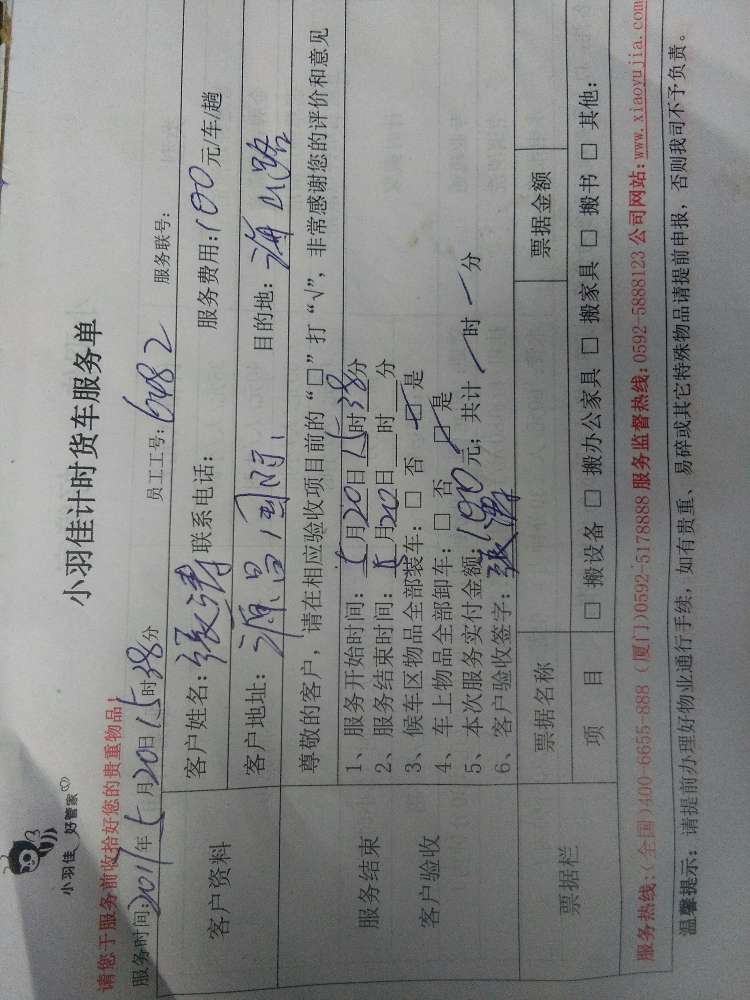 小羽佳 好管家
小羽佳计时货车服务单
请您于服务前收拾好您的贵重物品！
服务时间:2011年5月20日15时38分 员工工号:6482 服务联号:
客户资料
客户姓名:张涛 联系电话: 服务费用:100元/车/趟
客户地址:源昌国际 目的地:海山路
服务结束
客户验收
尊敬的客户，请在相应验收项目前的“□”打“√”，非常感谢您的评价和意见
1、服务开始时间:5月20日15时38分
2、服务结束时间:5月20日 时 分
3、候车区物品全部装车:□ 否 ☑是
4、车上物品全部卸车:□ 否 ☑是
5、本次服务实付金额:100元；共计 / 时 / 分
6、客户验收签字:张涛
票据栏
票据名称 票据金额
项 目 □ 搬设备 □ 搬办公家具 □ 搬家具 □ 搬书 □ 其他:
服务热线:(全国)400-6655-888 (厦门)0592-5178888 服务监督热线:0592-5888123 公司网站:www.xiaoyujia.com
温馨提示:请提前办理好物业通行手续，如有贵重、易碎或其它特殊物品请提前申报，否则我司不予负责。